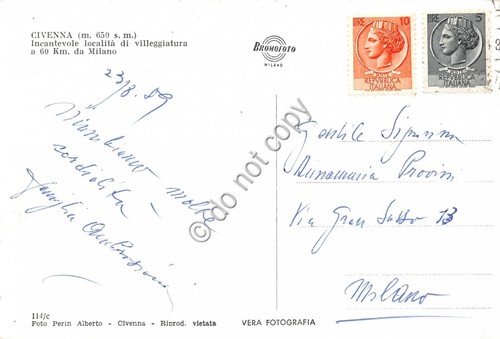 CIVENNA (m. 650 s. m.)
Incantevole località di villeggiatura
a 60 Km. da Milano
BROMOFOTO
MILANO
LIRE 10
REPVBBLICA
ITALIANA
LIRE 5
REPVBBLICA
ITALIANA
23/8.59
molte
cordialità
famiglia
Gentile Signorina
Annamaria Provini
Via Gran Sasso 13
Milano
do not copy
114/c
Foto Perin Alberto - Civenna - Riprod. vietata
VERA FOTOGRAFIA